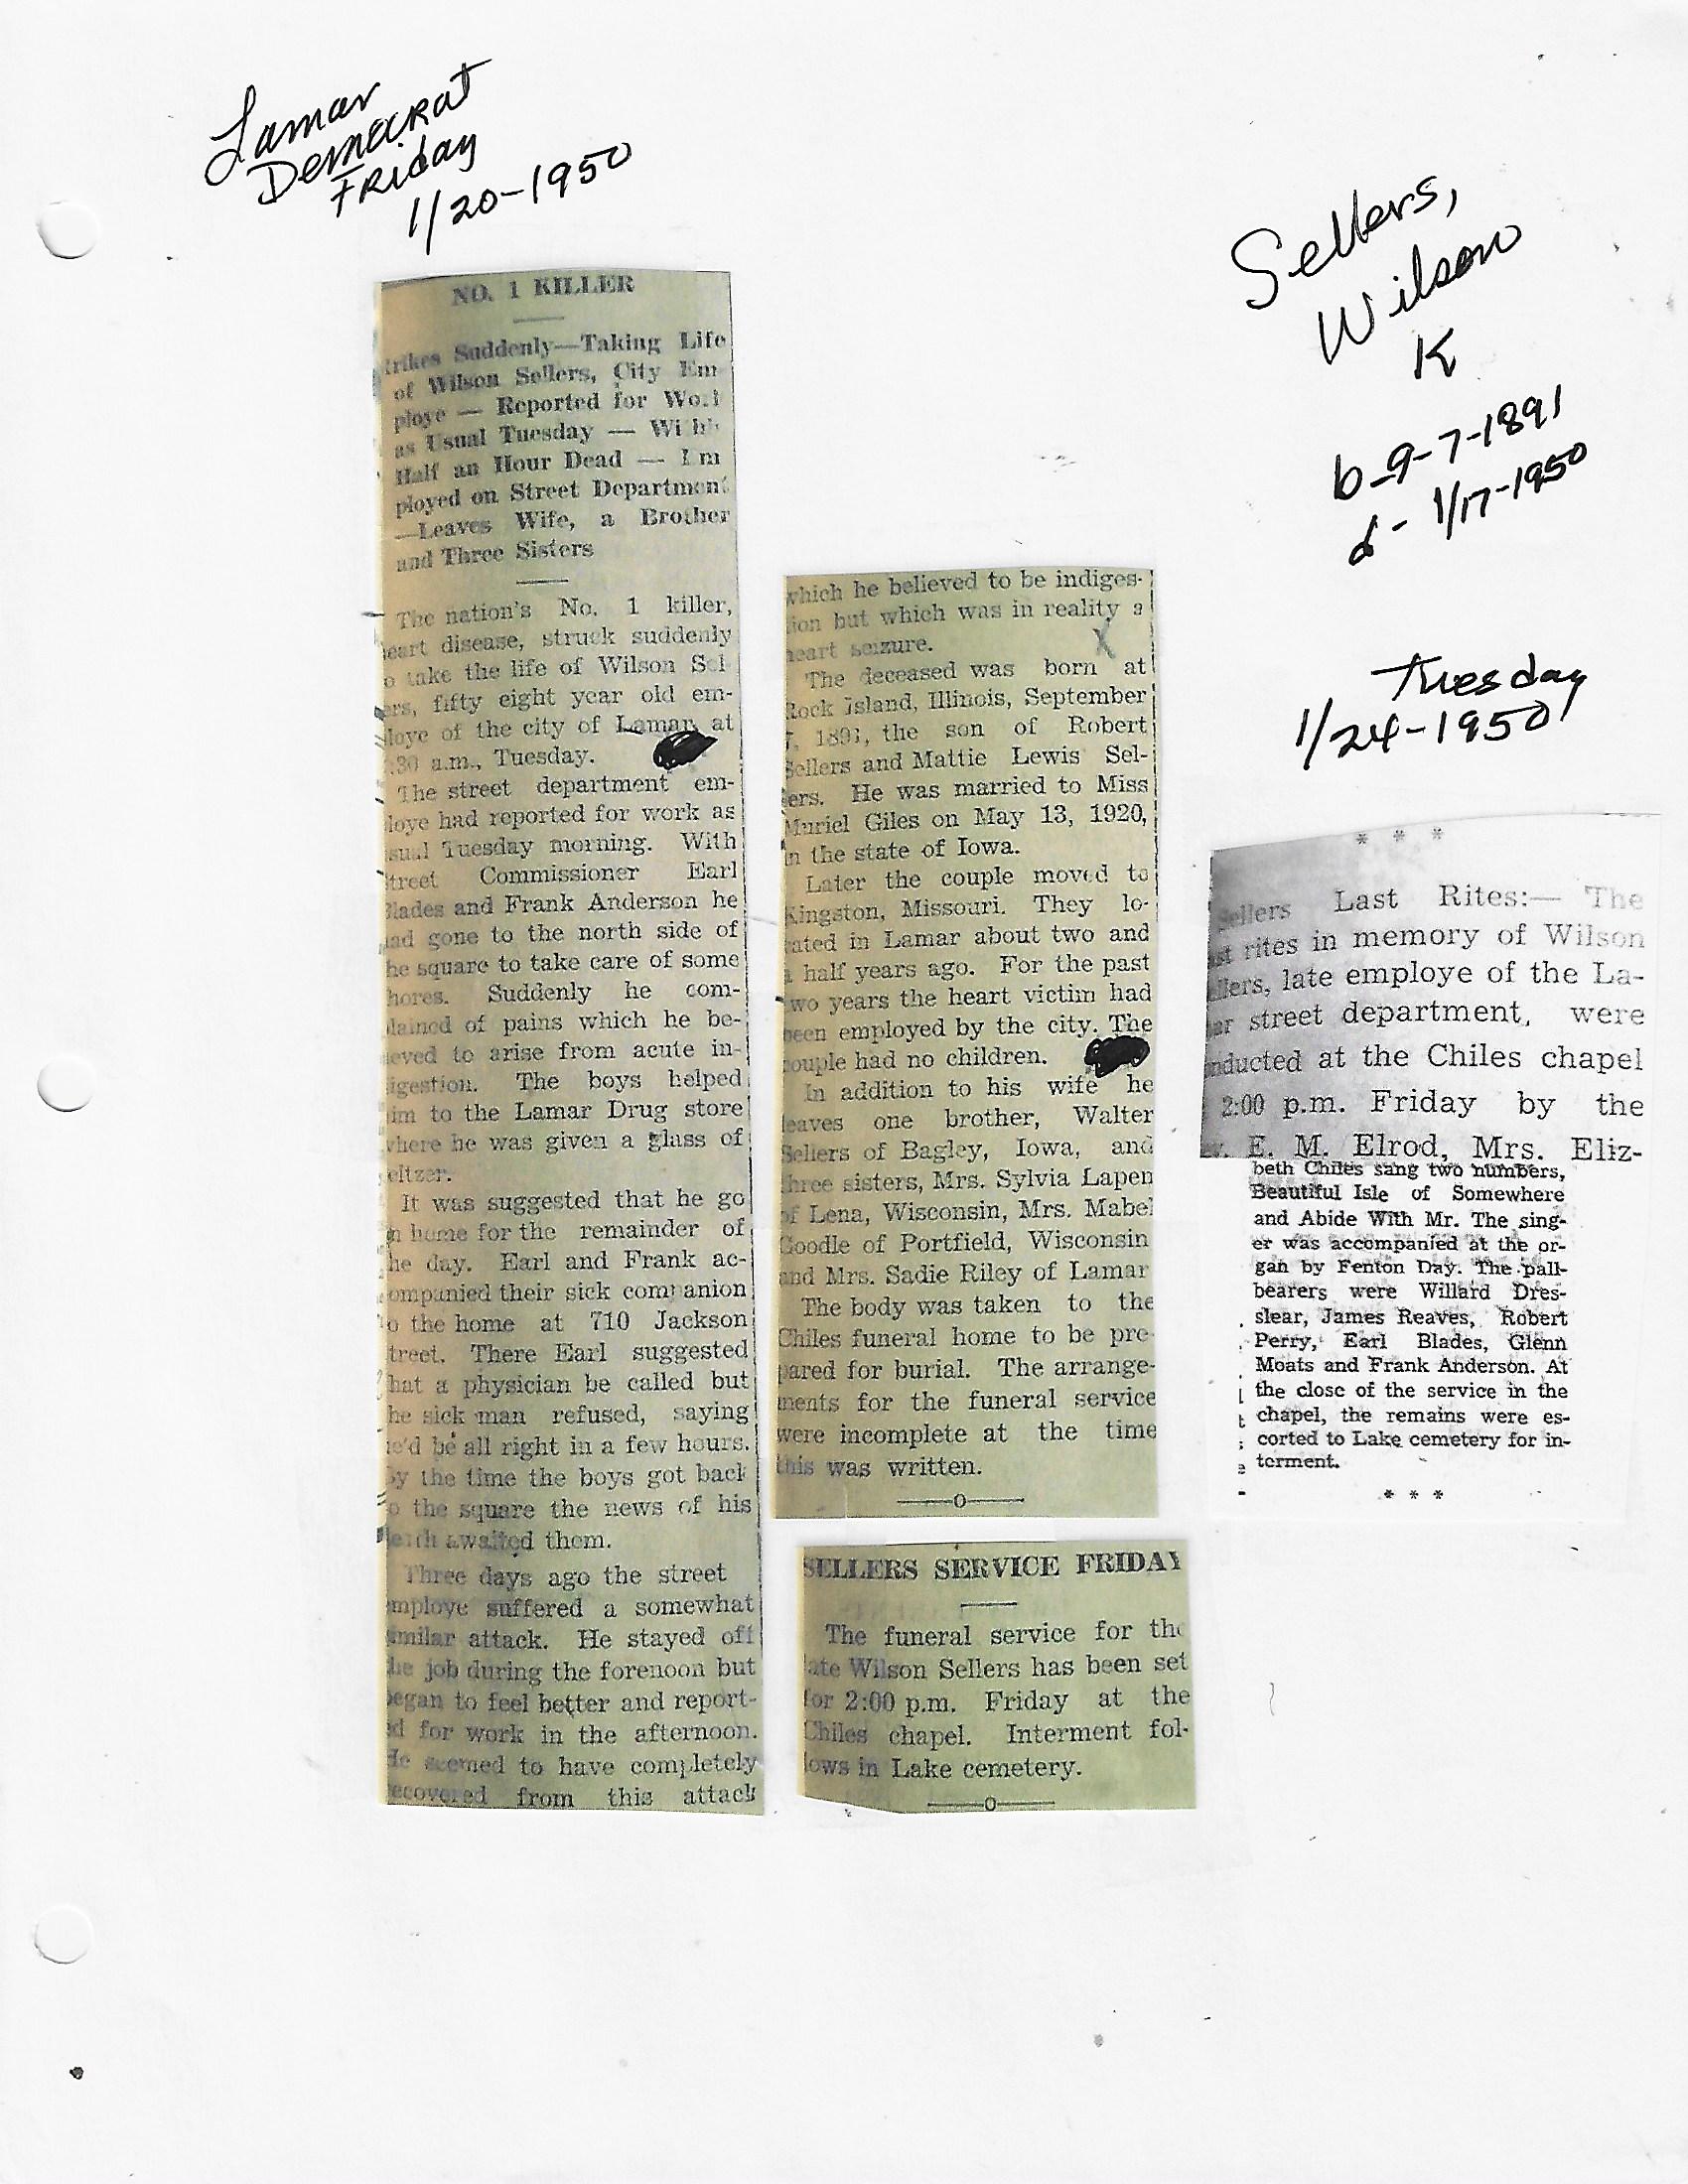 Lamar
Democrat
Friday
1/20-1950
Sellers,
Wilson
K
b-9-7-1891
d- 1/17-1950
Tuesday
1/24-1950
NO. 1 KILLER
trikes Suddenly—Taking Life
of Wilson Sellers, City Em
ploye — Reported for Wo
as Usual Tuesday — Wi
Half an Hour Dead — Em
ployed on Street Department
—Leaves Wife, a Brother
and Three Sisters
The nation's No. 1 killer,
heart disease, struck suddenly
o take the life of Wilson Sel-
ers, fifty eight year old em-
loye of the city of Lamar, at
:30 a.m., Tuesday.
The street department em-
loye had reported for work as
sual Tuesday morning. With
treet Commissioner Earl
lades and Frank Anderson he
ad gone to the north side of
he square to take care of some
hores. Suddenly he com-
lained of pains which he be-
ieved to arise from acute in-
igestion. The boys helped
im to the Lamar Drug store
where he was given a glass of
eltzer.
It was suggested that he go
n home for the remainder of
he day. Earl and Frank ac-
ompanied their sick companion
o the home at 710 Jackson
treet. There Earl suggested
hat a physician be called but
he sick man refused, saying
e'd be all right in a few hours.
By the time the boys got back
o the square the news of his
death awaited them.
Three days ago the street
mploye suffered a somewhat
imilar attack. He stayed off
he job during the forenoon but
egan to feel better and report-
d for work in the afternoon.
He seemed to have completely
ecovered from this attack
which he believed to be indiges-
tion but which was in reality a
heart seizure. X
The deceased was born at
Rock Island, Illinois, September
7, 1891, the son of Robert
Sellers and Mattie Lewis Sel-
ers. He was married to Miss
Muriel Giles on May 13, 1920,
in the state of Iowa.
Later the couple moved to
Kingston, Missouri. They lo-
cated in Lamar about two and
a half years ago. For the past
two years the heart victim had
been employed by the city. The
couple had no children.
In addition to his wife he
leaves one brother, Walter
Sellers of Bagley, Iowa, and
three sisters, Mrs. Sylvia Lapen
of Lena, Wisconsin, Mrs. Mabel
Goodle of Portfield, Wisconsin
and Mrs. Sadie Riley of Lamar
The body was taken to the
Chiles funeral home to be pre-
pared for burial. The arrange-
ments for the funeral service
were incomplete at the time
this was written.
—o—
SELLERS SERVICE FRIDAY
The funeral service for the
ate Wilson Sellers has been set
for 2:00 p.m. Friday at the
Chiles chapel. Interment fol-
lows in Lake cemetery.
—o—
* * *
Sellers Last Rites:— The
st rites in memory of Wilson
llers, late employe of the La-
ar street department, were
nducted at the Chiles chapel
2:00 p.m. Friday by the
v. E. M. Elrod, Mrs. Eliz-
beth Chiles sang two numbers,
Beautiful Isle of Somewhere
and Abide With Mr. The sing-
er was accompanied at the or-
gan by Fenton Day. The pall-
bearers were Willard Dres-
slear, James Reaves, Robert
Perry, Earl Blades, Glenn
Moats and Frank Anderson. At
the close of the service in the
chapel, the remains were es-
corted to Lake cemetery for in-
terment.
* * *